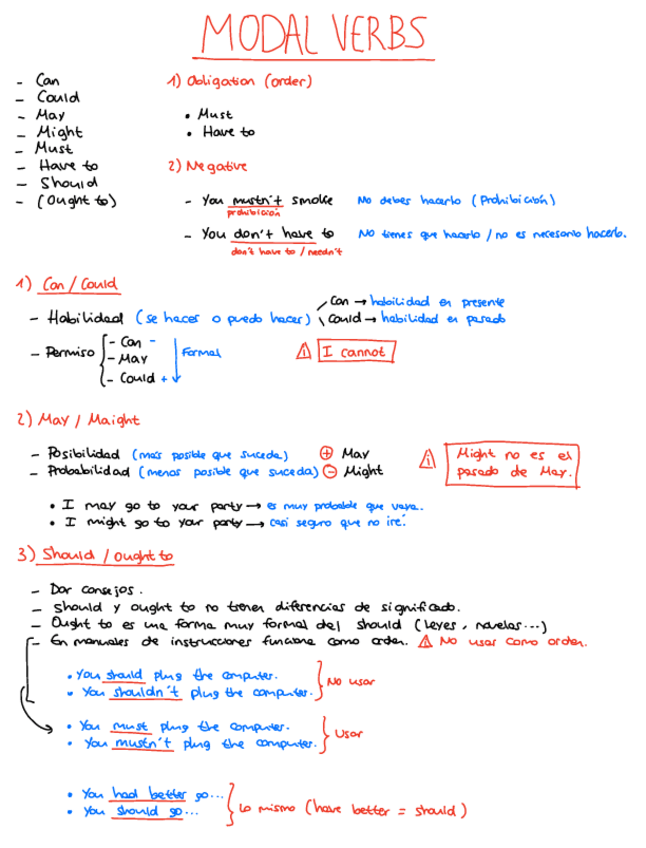 MODAL VERBS
- Can
- Could
- May
- Might
- Must
- Have to
- Should
- (Ought to)
1) Obligation (order)
• Must
• Have to
2) Negative
- You mustn't smoke No debes hacerlo (Prohibición)
prohibición
- You don't have to No tienes que hacerlo / no es necesario hacerlo.
don't have to / needn't
1) Can / Could
- Habilidad (se hacer o puedo hacer) Can → habilidad en presente
Could → habilidad en pasado
- Permiso - Can - Formal
- May
- Could +
I cannot
2) May / Maight
- Posibilidad (más posible que suceda) + May
- Probabilidad (menos posible que suceda) - Might
Might no es el
pasado de May.
• I may go to your party → es muy probable que vaya.
• I might go to your party → casi seguro que no iré.
3) Should / Ought to
- Dar consejos.
- Should y ought to no tienen diferencias de significado.
- Ought to es una forma muy formal del should (leyes, novelas...)
- En manuales de instrucciones funciona como orden. No usar como orden.
• You should plug the computer.
• You shouldn't plug the computer. No usar
• You must plug the computer.
• You mustn't plug the computer. Usar
• You had better go...
• You should go... Lo mismo (have better = should)